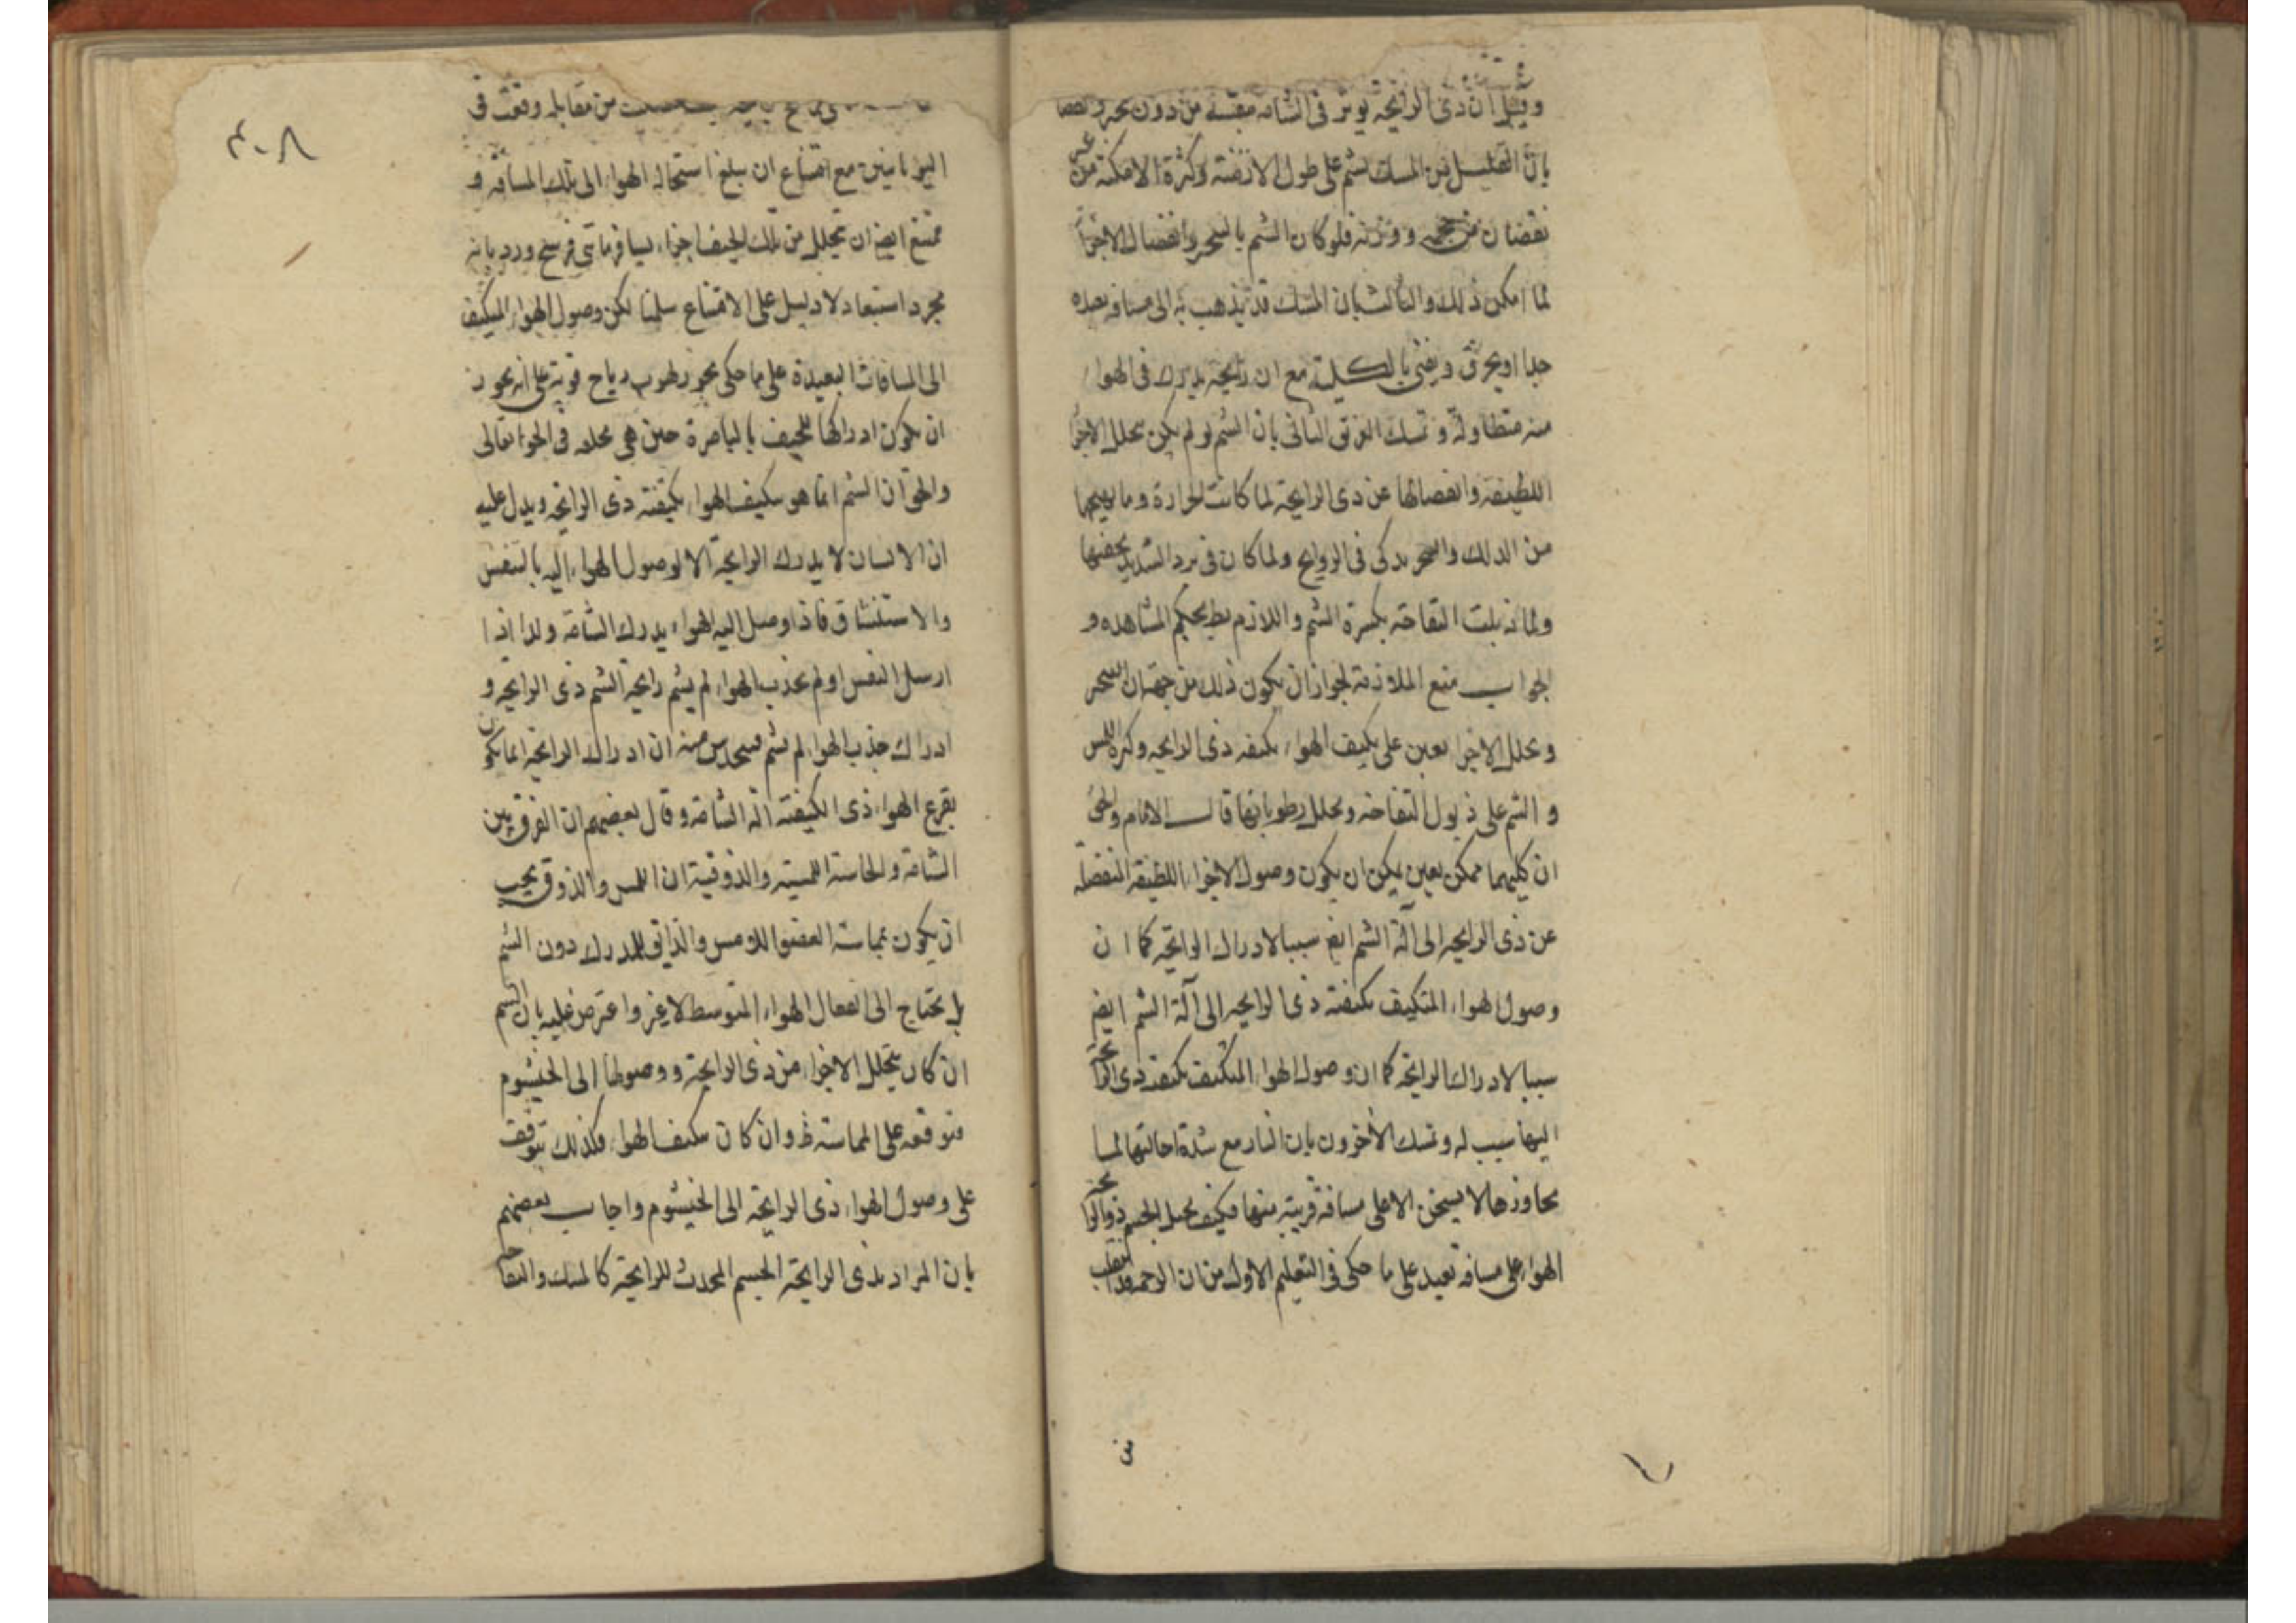 وقيل ان ذى الرايحة يوثر فى الشامة من دون
بان القليل من المسك يشم على طول الازمنة وكثرة الامكنة من غير
نقصان من حجمه ووزنه فلو كان الشم بالتبخر وانفصال الاجزا
لما امكن ذلك والثالث بان المسك قد يذهب به الى مسافة بعيده
جدا او يحرق ويفنى بالكلية مع ان رايحته يدرك فى الهواء
منه متطاولة وتمسك الفرق الثانى بان الشم لو لم يكن بتحلل الاجزا
اللطيفة وانفصالها عن ذى الرايحة لما كانت الحرارة وما يهيجها
من الدلك والتبخر يذكى فى الروايح ولما كان فى برد الشديد يخفيها
ولما ذبلت التفاحة بكثرة الشم واللازم بط بحكم المشاهده و
الجواب منع الملازمة لجواز ان يكون ذلك من جهة ان التبخر
وتحلل الاجزا يعين على تكيف الهواء بكيفه ذى الرايحه وكثرة اللمس
والشم على ذبول التفاحه وتحلل رطوباتها قال الامام والحق
ان كليهما ممكن يعين يمكن ان يكون وصول الاجزاء اللطيفة المنفصلة
عن ذى الرايحه الى آلة الشم ايض سببا لادراك الرايحة كما ان
وصول الهواء المتكيف بكيفية ذى الرايحه الى آلة الشم ايض
سببا لادراك الرايحة كما ان وصول الهواء المتكيف بكيفة ذى الرايحة
اليها سبب له وتمسك الآخرون بان النار مع شدة احالتها لما
يجاورها لا يسخن الا على مسافة قريبة منها فكيف يحيل الجسم ذو الرايحة
الهواء على مسافه بعيد على ما حكى فى التعليم الاول من ان الرخمة قد انتقلت
من
٣٠٨
من مقابله وقعت فى
اليونانيين مع امتناع ان يبلغ استحالة الهواء الى تلك المسافه و
يمتنع ايض ان يتحلل من تلك الجيف اجزاء يسافر مأتى فرسخ ورد بانه
مجرد استبعاد لا دليل على الامتناع سلمنا لكن وصول الهواء المتكيف
الى المسافات البعيدة على ما حكى يجوز لهبوب رياح قوية على انه يجوز
ان يكون ادراكها للجيف بالباصرة حين هى محلقه فى الجو العالى
والحق ان الشم انما هو بتكيف الهواء بكيفية ذى الرايحة ويدل عليه
ان الانسان لا يدرك الرايحة الا بوصول الهواء اليه بالتنفس
والاستنشاق فاذا وصل اليه الهواء يدرك الشامة ولذا اذا
ارسل النفس او لم يجذب الهواء لم يشم رايحة الشم ذى الرايحة و
ادراك جذب الهواء لم يشم فيحدس منه ان ادراك الرايحة انما يكون
بقرع الهواء ذى الكيفية آلة الشامة وقال بعضهم ان الفرق بين
الشامة والحاسة اللمسية والذوقية ان اللمس والذوق يجب
ان يكون بمماسة العضو اللامس والذائق للمدرك دون الشم
بل يحتاج الى انفعال الهواء المتوسط لا غير واعترض عليه بان الشم
ان كان بتحلل الاجزاء من ذى الرايحة ووصولها الى الخيشوم
فتوقفه على المماسة ظ وان كان بتكيف الهواء فكذلك يتوقف
على وصول الهواء ذى الرايحة الى الخيشوم واجاب بعضهم
بان المراد بذى الرايحة الجسم المحدث للرايحة كالمسك والتفاحة